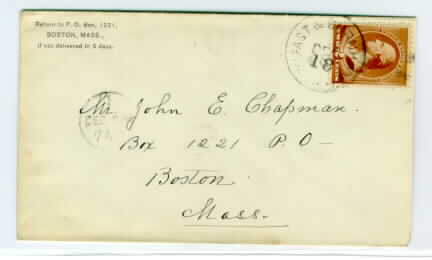 Return to P. O. Box, 1221,
BOSTON, MASS.,
if not delivered in 5 days.
Mr. John E. Chapman.
Box 1221 P. O—
Boston.
Mass.—